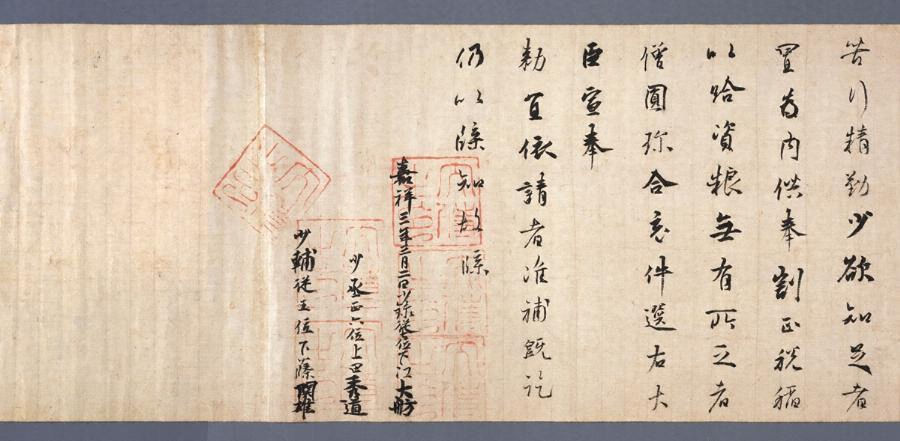 苦行精勤少欲知足者
置为内供奉割正税稲
以給資粮無有所乏者
僧圓珍合定件選右大
臣宣奉
勅宜依請者准補既訖
仍以牒知故牒
嘉祥三年三月二日少録従位下江大舫
少丞正六位上田秀道
少輔従五位下藤関雄